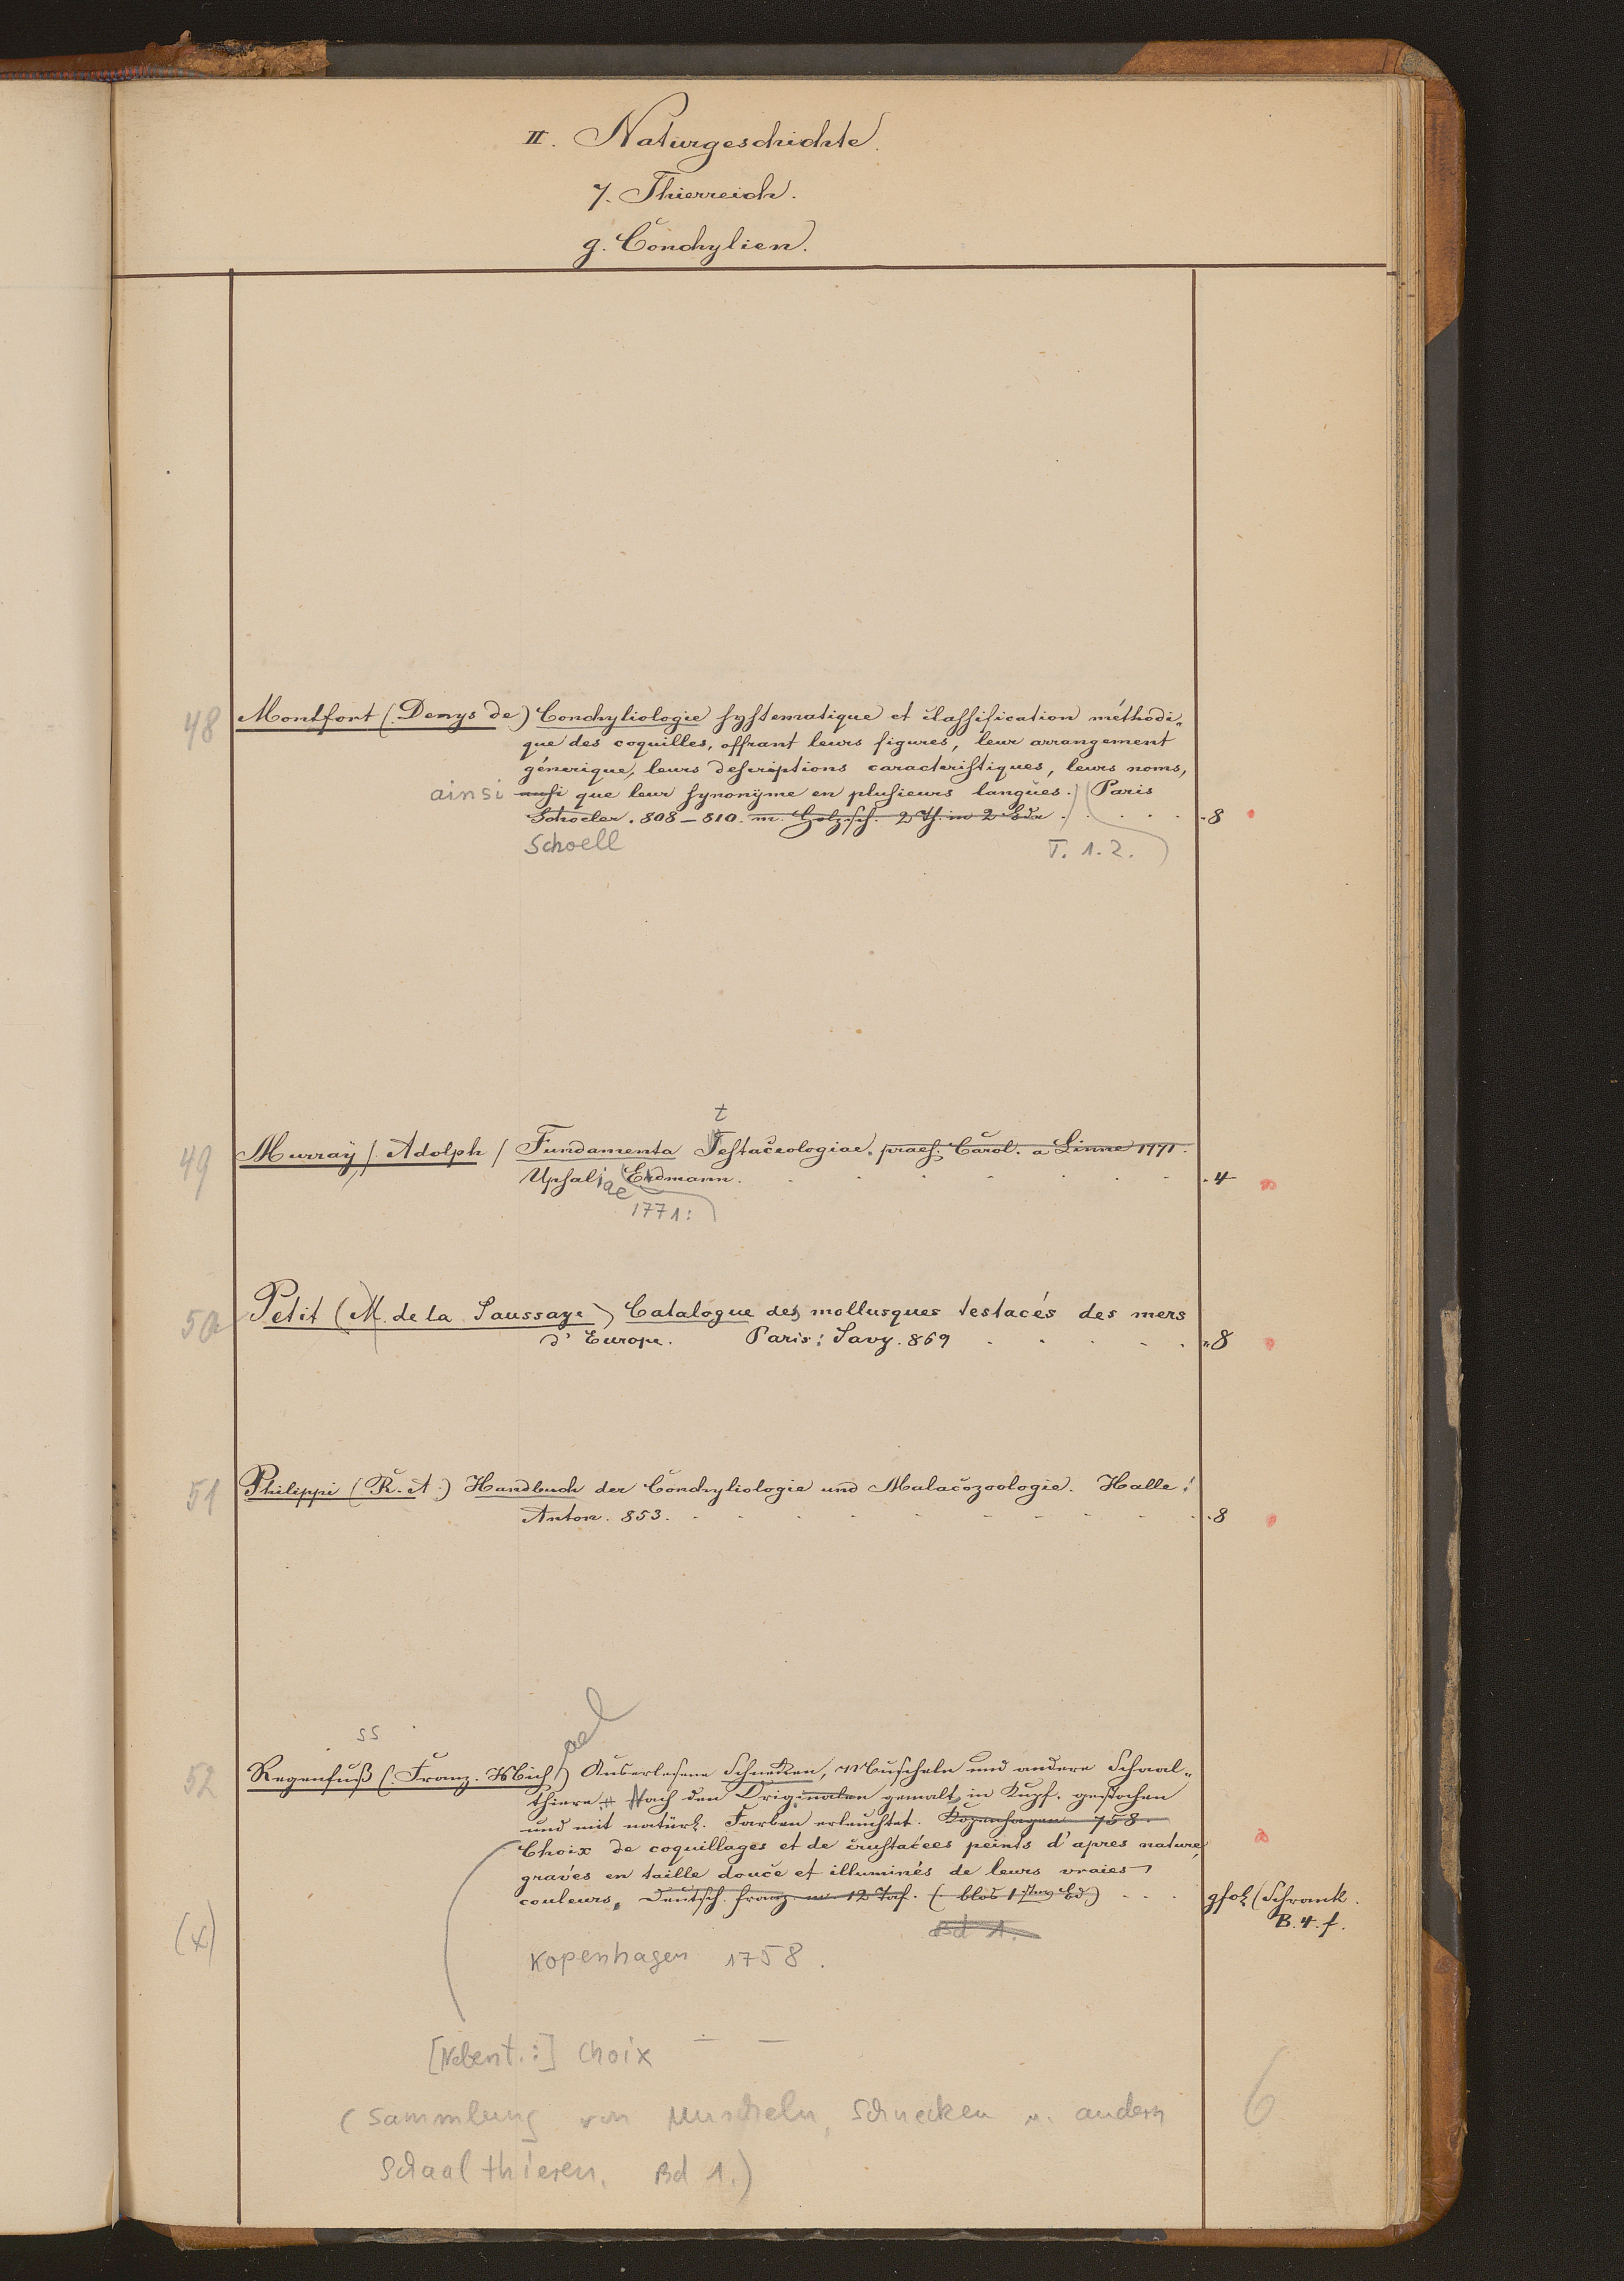 II. Naturgeschichte.
7. Thierreich.
g. Conchylien.
48 Montfort (Denys de) Conchyliologie systematique et classification méthodi„
que des coquilles, offrant leurs figures, leur arrangement
générique, leurs descriptions caracteristiques, leurs noms,
ainsi aussi que leur synonyme en plusieurs langues. Paris
Schoeler. 808–810. m. Holzsch. 2 Th. in 2 Bdn . . . . 8
Schoell T. 1.2.
t
49 Murray / Adolph / Fundamenta Testaceologiae. praes. Carol. a Linne 1771.
Upsaliae Erdmann. . . . . . . 4
1771:
50 Petit (M. de la Saussaye) Catalogue des mollusques testacés des mers
d'Europe. Paris: Savy. 869 . . . . . „8
51 Philippi (R. A.) Handbuch der Conchyliologie und Malacozoologie. Halle:
Anton. 853. . . . . . . . . . 8
ss ael
52 Regenfuß (Franz. Mich.) Auserlesene Schneken, Muscheln und andere Schaal„
thiere. Nach den Originalen gemalt, in Kupf. gestochen
und mit natürl. Farben erleuchtet. Kopenhagen 758.
Choix de coquillages et de crustacées peints d'apres nature,
gravés en taille douce et illuminés de leurs vraies
couleurs. Deutsch. franz. m 12 Taf. (blos 1ster Bd) . . . gfol. (Schrank
B. 4. f.
(x) Bd 1.
Kopenhagen 1758.
[Nebent.:] Choix — —
(Sammlung von Muscheln, Schnecken u. andern
Schaalthieren. Bd 1.)
6